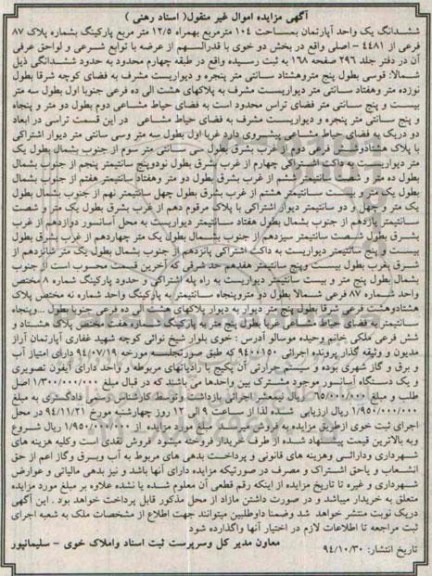 آگهی مزایده اموال غیر منقول( اسناد رهنی )
ششدانگ یک واحد آپارتمان بمساحت ۱۰۴ مترمربع بهمراه ۱۲/۵ متر مربع پارکینگ بشماره پلاک ۸۷
فرعی از ۴۴۸۱ - اصلی واقع در بخش دو خوی با قدرالسهم از عرصه با توابع شرعی و لواحق عرفی
آن در دفتر جلد ۲۹۶ صفحه ۱۶۸ به ثبت رسیده واقع در طبقه چهارم محدود به حدود ششدانگی ذیل
شمالا: قوسی بطول پنج متروهشتاد سانتی متر پنجره و دیواریست مشرف به فضای کوچه شرقا بطول
نوزده متر وهفتاد سانتی متر دیواریست مشرف به پلاکهای هشت الی ده فرعی جنوبا اول بطول سه متر
بیست و پنج سانتی متر فضای تراس محدود است به فضای حیاط مشاعی دوم بطول دو متر و پنجاه
و پنج سانتی متر پنجره و دیواریست مشرف به فضای حیاط مشاعی در این قسمت تراسی در ابعاد
دو دریک به فضای حیاط مشاعی پیشروی دارد غربا اول بطول سه متر وسی سانتی متر دیوار اشتراکی
با پلاک هشتادوشش فرعی دوم از غرب بشرق بطول سانتی متر سوم از جنوب بشمال بطول یک
متر دیواریست به داکت اشتراکی چهارم از غرب بشرق بطول نودوپنج سانتیمتر پنجم از جنوب بشمال
بطول ده متر و سانتیمتر ششم از غرب بشرق بطول دو متر وهفتاد سانتیمتر هفتم از جنوب بشمال
بطول یک متر و بیست سانتیمتر هشتم از غرب بشرق بطول چهل سانتیمتر نهم از جنوب بشمال بطول
یک متر و چهل و دو سانتیمتر دیوار اشتراکی با پلاک مرقوم دهم از غرب بشرق بطول یک متر و شصت
سانتیمتر یازدهم از جنوب بشمال بطول هفتاد سانتیمتر دیواریست به محل آسانسور دوازدهم از غرب
بشرق بطول شصت سانتیمتر سیزدهم از جنوب بشمال بطول یک متر چهاردهم از غرب بشرق بطول
بیست و پنج سانتیمتر دیواریست به داکت اشتراکی پانزدهم از جنوب بشمال بطول یک متر شانزدهم از
شرق بغرب بطول بیست وپنج سانتیمتر هفدهم حد شرقی که آخرین قسمت محسوب است از جنوب
بشمال بطول پنج متر و بیست سانتیمتر دیواریست به راه پله اشتراکی و حدود پارکینگ شماره ۸ مختص
واحد شماره ۸۷ فرعی شمالا بطول دو متروپنجاه سانتیمتر به پارکینگ واحد شماره نه مختص پلاک
هشتادوهشت فرعی شرقا بطول پنج متر دیوار به دیوار پلاکهای هشت الی ده فرعی جنوبا بطول وپنجاه
سانتیمتر به فضای حیاط مشاعی غربا بطول پنج متر به پارکینگ واحد شماره هفت مختص پلاک هشتاد و
شش فرعی ملکی خانم وحیده موسالو آدرس : خوی بلوار شیخ نوائی کوچه شهید غفاری آپارتمان آراز
مدیون و وثیقه گذار پرونده اجرائی ۹۴۰۰۱۵۰ که طبق صورتجلسه مورخه ۹۴/۰۷/۱۹ دارای امتیاز آب
و برق و گاز شهری بوده و سیستم حرارتی آن پکیج با رادیاتهای مربوطه و واحد دارای آیفون تصویری
و یک دستگاه آسانسور موجود مشترک بین واحدها می باشد که در قبال مبلغ ۱/۳۰۰/۰۰۰/۰۰۰ اصل
طلب و مبلغ ریال نیمعشر اجرائی بازداشت وتوسط کارشناس رسمی دادگستری به مبلغ
۱/۹۵۰/۰۰۰/۰۰۰ ریال ارزیابی شده لذا از ساعت ۹ الی ۱۲ روز چهارشنبه مورخ ۹۴/۱۱/۲۱ در محل
اجرای ثبت خوی ازطریق مزایده به فروش میرسد مبلغ مورد مزایده از ۱/۹۵۰/۰۰۰/۰۰۰ ریال شروع
وبه بالاترین قیمت پیشنهاد شده از طرف خریدار فروخته میشود فروش نقدی است وکلیه هزینه های
شهرداری ودارائی وهزینه های قانونی و پرداخت بدهی های مربوط به آب وبرق وگاز اعم از حق
انشعاب و یاحق اشتراک و مصرف در صورتیکه مزایده دارای آنها باشد و نیز بدهی مالیاتی و عوارض
شهرداری و غیره تا تاریخ مزایده از اینکه رقم قطعی آن معلوم شده یا نشده علاوه بر مبلغ مورد مزایده
متعلق به خریدار میباشد و در صورت داشتن مازاد از محل مذکور قابل پرداخت خواهد بود . این آگهی
دریک نوبت منتشر خواهد شد وضمنا داوطلبین میتوانند جهت اطلاع از مشخصات ملک به شعبه اجرای
ثبت مراجعه تا اطلاعات لازم در اختیار آنها واگذارده شود
معاون مدیر کل وسرپرست ثبت اسناد واملاک خوی - سلیمانپور
تاریخ انتشار: ۹۴/۱۰/۳۰